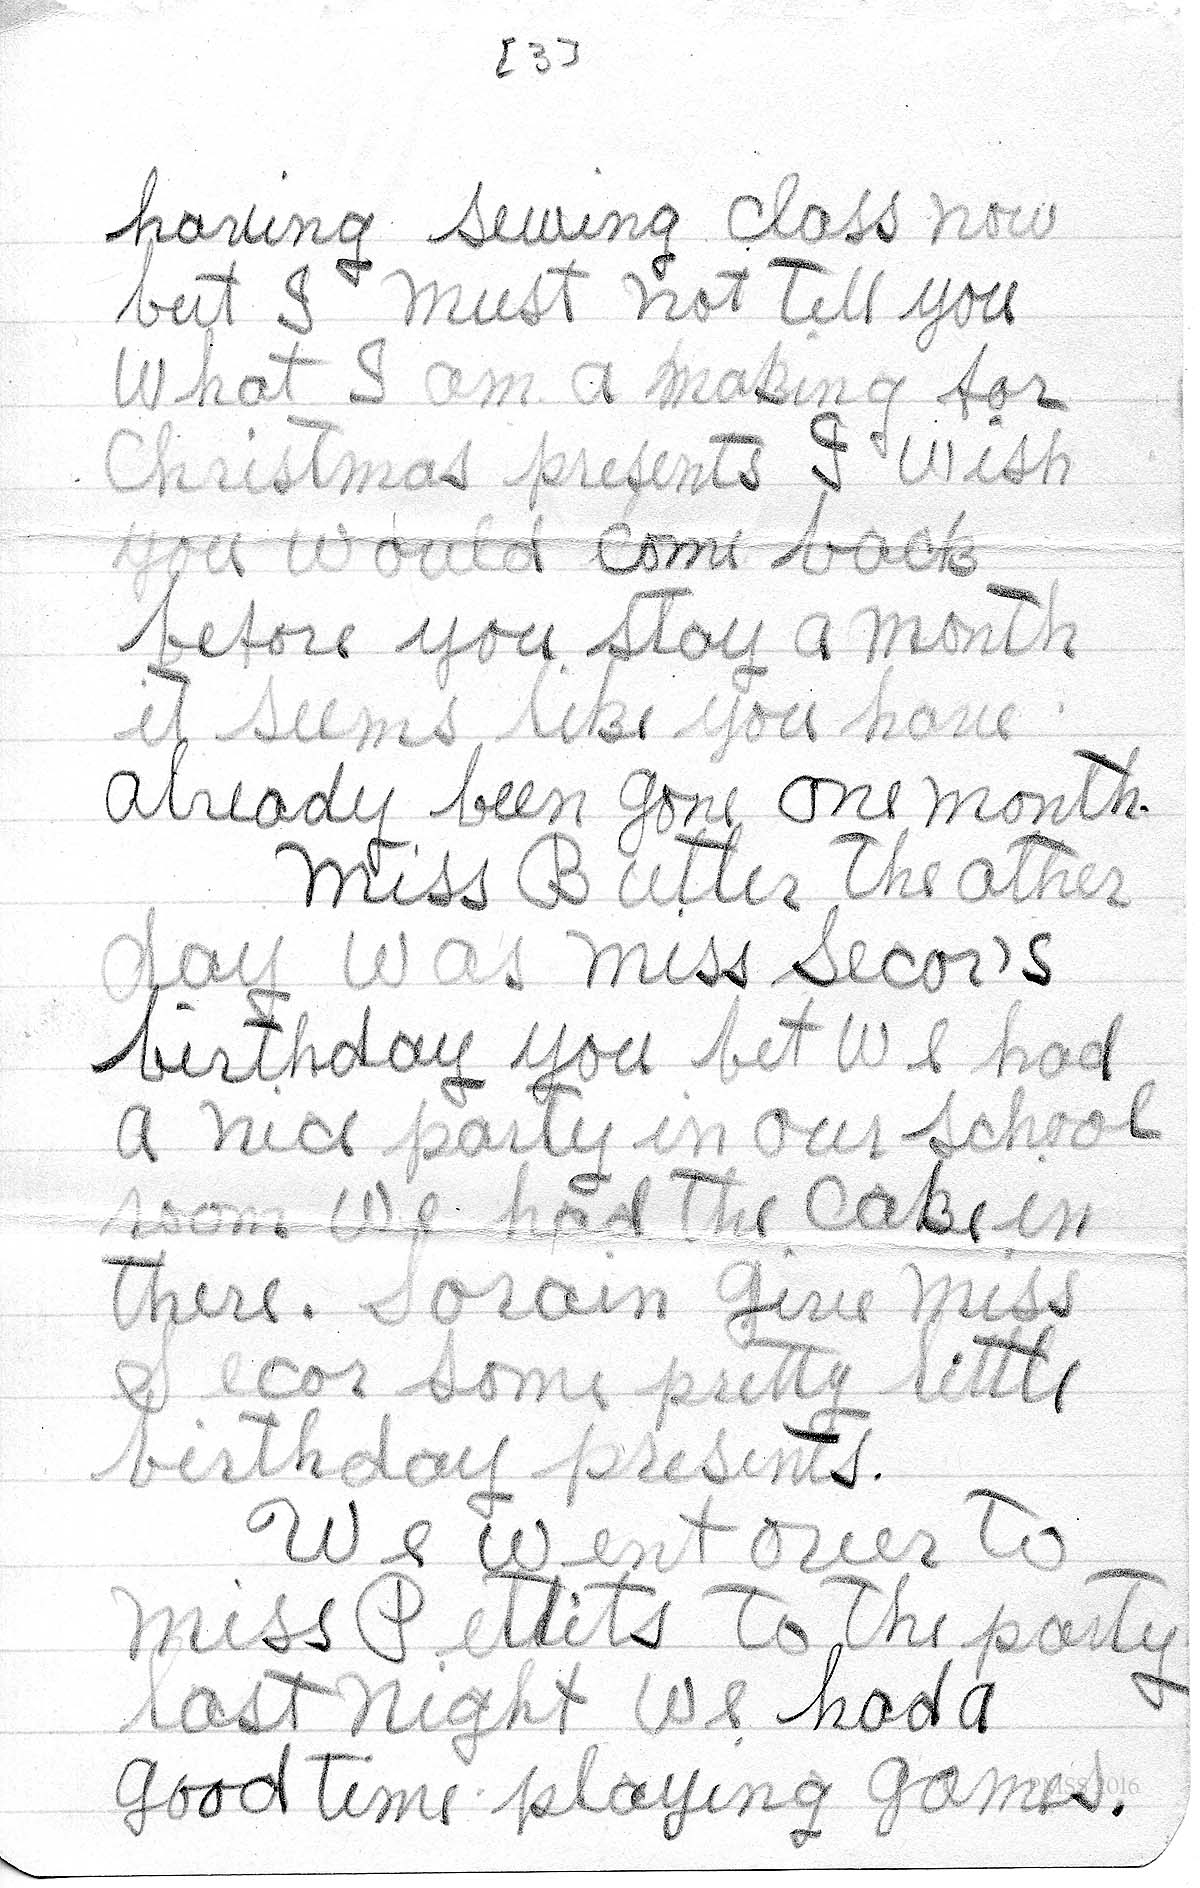 [3]
having sewing class now
but I must not tell you
What I am a making for
Christmas presents I wish
you would come back
before you stay a month
it seems like you have
already been gone one month.
Miss Butler the other
day was Miss Secor's
birthday you bet we had
a nice party in our school
room we had the cake in
there. Lorain give miss
Secor some pretty little
birthday presents.
We went over to
miss Pettits to the party
last night we had a
good time playing games.
PMSS 2016